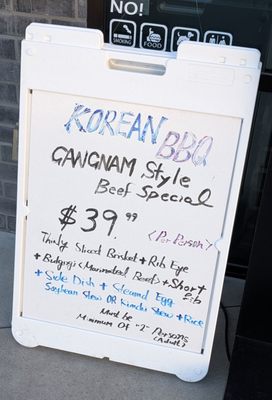 NO!
KOREAN BBQ
GANGNAM Style
Beef Special
$39.99
<Per Person>
Thinly Sliced Brisket + Rib Eye
+ Bulgogi (Marinated Beef) + Short Rib
+ Side Dish + Steamed Egg
Soybean Stew OR Kimchi Stew + Rice
Must be
Minimum OF "2" Persons
(Adult)